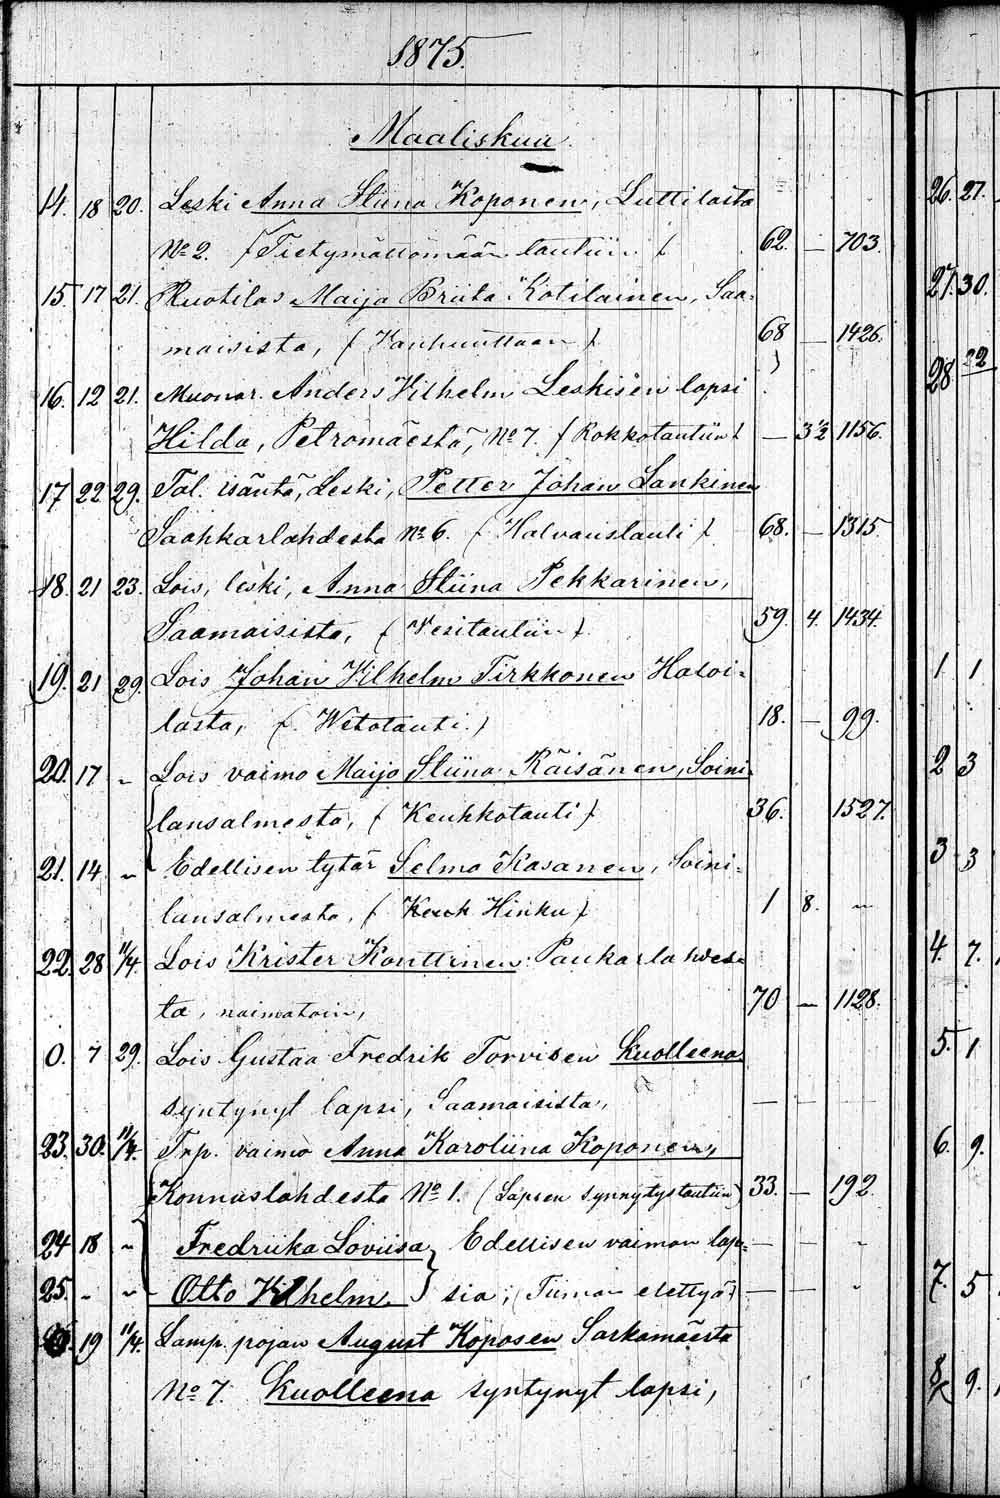 1875.
Maaliskuu
14. 18 20. Leski Anna Stiina Koponen, Luttilasta
No 2. (Tietymättömään tautiin) 62. — 703.
15. 17 21. Ruotilas Maija Briita Kotilainen, Saa-
maisista, (Vanhuuttaan) 68 — 1426.
16. 12 21. Muonar. Anders Vilhelm Leskisen lapsi
Hilda, Petromäestä, No 7. (Rokkotautiin) — 3 1/2 1156.
17 22 29. Tal. isäntä, Leski, Petter Johan Lankinen
Saahkarlahdesta No 6. (Halvaustauti) 68. — 1315
18. 21 23. Lois, leski, Anna Stiina Pekkarinen,
Saamaisista, (Vesitautiin) 59. 4. 1434.
19. 21 29. Lois Johan Vilhelm Tirkkonen Haloi-
lasta, (Wetotauti.) 18. — 99.
20. 17 " Lois vaimo Maija Stiina Räisänen, Soini-
lansalmesta, (Keuhkotauti) 36. 1527.
21. 14. " Edellisen tytär Selma Kasanen, Soini-
lansalmesta, (Keuh Hinku) 1 8. "
22. 28 11/4. Lois Krister Konttinen Paukarlahdes-
ta, naimatoin, 70 — 1128.
0. 7 29. Lois Gustaa Fredrik Torvisen Kuolleena
syntynyt lapsi, Saamaisista, — — —
23. 30. 11/4. Trp. vaimo Anna Karoliina Koponen,
Konnuslahdesta No 1. (Lapsen synnytystautiin) 33. — 192.
24 18 " Fredriika Loviisa Edellisen vaimon lap- — — "
25. " " Otto Vilhelm. sia, (Tiiman elettyä) — — "
19 11/4. Lamp. pojan August Koposen Sarkamäestä
No 7. Kuolleena syntynyt lapsi,
26. 27.
27. 30.
28 22
1 1
2 3
3 3
4. 7.
5. 1
6. 9.
7. 5
8 9.